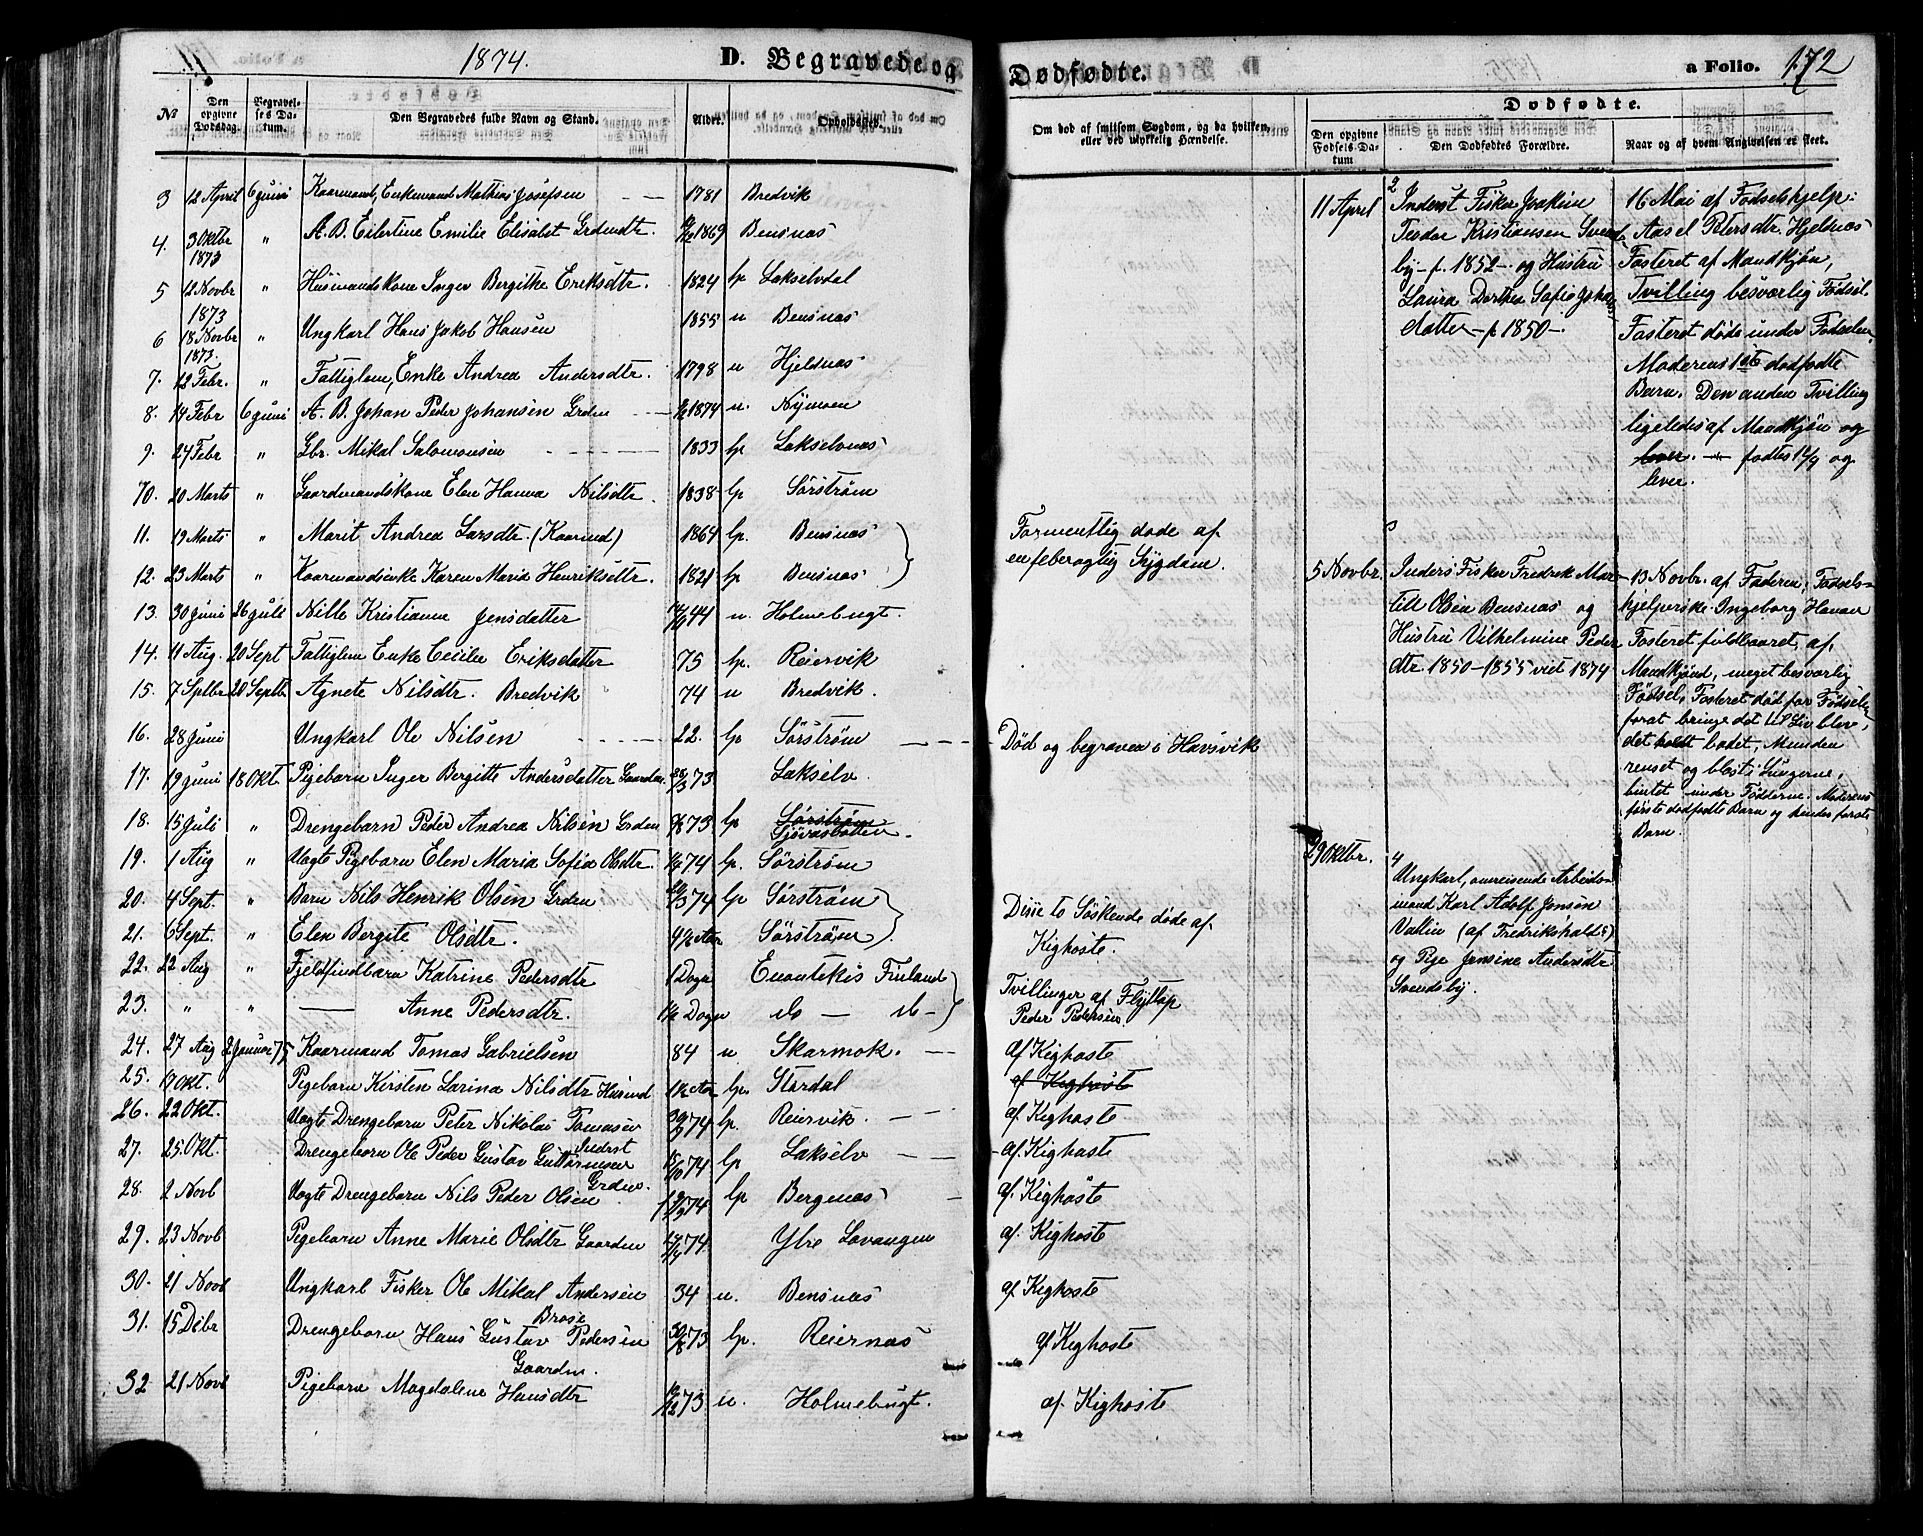 1874. D. Begravede og
№ Den opgivne Dødsdag. Begravelses Datum. Den Begravedes fulde Navn og Stand. Alder. Opholdssted.
3 12 April 6 Juni Kaarmand, Enkemand Mathias Josefsen 1781 Bredvik
4. 3 Oktbr 1873 " A. B. Eilertine Emilie Elisabet Grdmdtr. 1869 Bensnas
5 12 Novbr 1873 " Husmandskone Inger Bergitte Eriksdtr. 1824 lp Lakselvdal
6 18 Novbr 1873. " Ungkarl Hans Jakob Hansen 1855 n Bensnas
7. 12 Febr. " Fattiglem, Enke Andrea Andersdtr. 1798 n Hjeldnas
8. 14 Febr 6 Juni A. B. Johan Peder Johansen Grdm 1874 n. Nymoen
9. 24 Febr " Gbr. Mikal Salomonsen 1833 lp Lakselvnas
10. 20 Marts " Gaardmandskone Elen Hanna Nilsdtr. 1838 lp Sørstrøm
11. 19 Marts " Marit Andrea Larsdtr. (Kaarind) 1864 lp. Bensnas
12. 23 Marts " Kaarmandsenke Karen Maria Henriksdtr. 1821 lp Bensnas
13. 30 Juni 26 Juli Nille Kristianna Jensdatter 44 n. Holmebugt.
14. 11 Aug. 20 Sept Fattiglem Enke Cecilie Eriksdatter 75 lp. Reiervik
15. 7 Sptbr 20 Septb Agnete Nilsdtr. Bredvik 74 n Bredvik.
16. 28 Juni Ungkarl Ole Nilsen 22. lp Sørstrøm
17. 19 Juni 18 Okt. Pigebarn Inger Bergitte Andersdatter Gaardm. 73 Lakselv.
18. 15 Juli " Drengebarn Peder Andrea Nilsen Grdm 73 lp Sørstrøm Sjøvasbotten.
19. 1 Aug " Uægte Pigebarn Elen Maria Sofia Olsdtr. 74 lp. Sørstrøm
20. 4 Sept. " Barn Nils Henrik Olsen Grdm 74 lp Sørstrøm
21. 6 Sept. " Elen Bergite Olsdtr. 4½ Aar Sørstrøm
22. 22 Aug " Fjeldfindbarn Katrine Pedersdtr 1 Døgn Enontekis Finland
23. " " Anne Pedersdtr. 1½ Døgn do do
24. 27 Aug 2 Januar 75 Kaarmand Tomas Gabrielsen 84 n Skarmok.
25. 17 Okt. Pigebarn Kirsten Larina Nilsdtr Husmd 1½ Aar lp. Stordal
26. 22 Okt. Uægte Drengebarn Peter Nikolai Tomasen 74 lp. Reiervik.
27. 25. Okt. Drengebarn Ole Peder Gustav Guttormsen Inderst 74 lp Lakselv
28. 2 Novb Uægte Drengebarn Nils Peder Olsen Grdm. 74 lp Bergenas
29. 23 Novb Pigebarn Anne Marie Olsdtr Gaardm 74. Ytre Lavangen
30. 21 Novb Ungkarl Fisker Ole Mikal Andersen 34 n. Bensnas
31. 15 Debr Drengebarn Hans Gustav Brose Pedersen 73 lp. Reiernas
32 21 Novb Gaardm. Pigebarn Magdalene Hansdtr 73 n. Holmebugt.
Dødfødte. a Folio. 172
Om død af smitsom Sygdom, og da hvilken, eller ved ulykkelig Hændelse.
Dødfødte.
Den opgivne Fødsels-Datum
Den Dødfødtes Forældre.
Naar og af hvem Angivelsen er skeet.
Formentlig døde af
en feberagtig Sygdom.
Død og begraven i Havsvik
Disse to Søskende døde af
Kighoste.
Tvillinger af Flytlap
Peder Pedersen.
af Kighoste
af Kighoste
af Kighoste
af Kighoste
af. Kighoste
af. Kighoste
af Kighoste
af Kighoste
af. Kighoste
11 April
2
Inderst Fisker Joakim
Teodor Kristiansen Svends
by f. 1852 og Hustru
Laura Dorthea Sofie Johan
datter f 1850
16 Mai af Fødselshjelp:
Aasel Petersdtr. Hjelsnas
Fosteret af Mandkjøn,
Tvilling besværlig Fødsel.
Fosteret døde under Fødselen
Moderens 1ste dødfødte
Barn. Den anden Tvilling
ligeledes af Mandkjøn og
lever. fødtes 12/4 og
lever.
5 Novbr.
3
Inders Fisker Fredrik Mar-
till Olsen Bensnas og
Hustru Vilhelmine Peder
dtr. 1850 - 1855 viet 1874
13 Novbr. af Faderen, Fødsels-
hjelperske Ingeborg Hanna
Fosteret fuldbaaret, af
Mandkjønd, meget besværlig
Fødsel. Fosteret død før Fødselen
forat bringe det til Liv blev
det badet, Munden
renset og blæst i Lungerne,
børstet under Føderne. Moderens
første dødfødte Barn og hendes første
Barn.
29 Oktbr.
4
Ungkarl, omreisende Arbeids-
mand Karl Adolf Jensen
Vallin (af Fredrikshald)
og Pige Jensine Andersdtr
Svendsby.